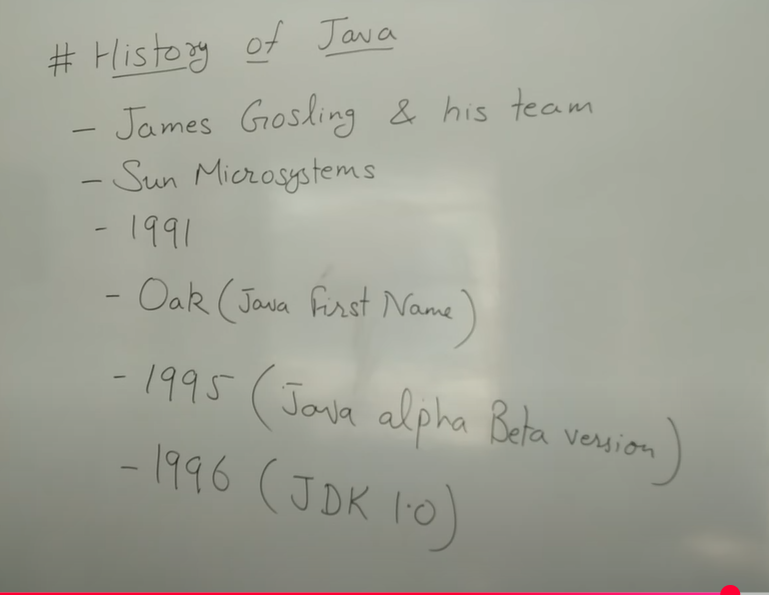 # History of Java
- James Gosling & his team
- Sun Microsystems
- 1991
- Oak (Java First Name)
- 1995 (Java alpha Beta version)
- 1996 (JDK 1.0)